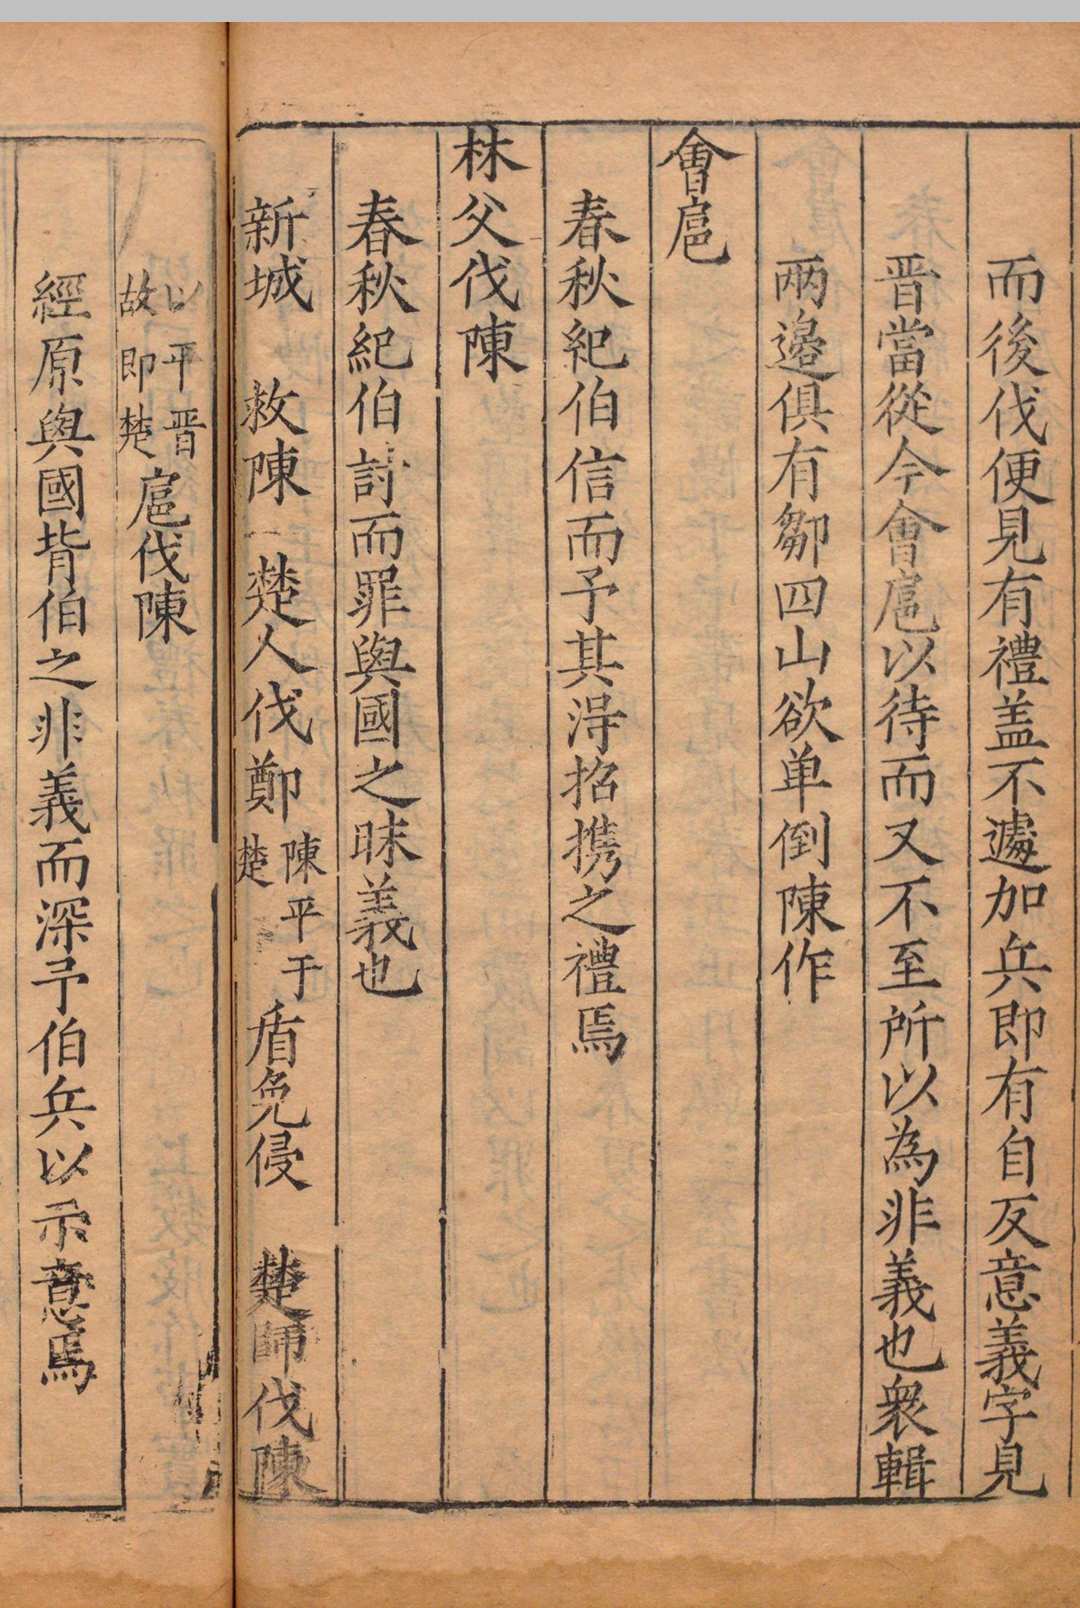 而後伐便見有禮盖不遽加兵即有自反意義字見
晋當從今會扈以待而又不至所以為非義也衆輯
兩邊俱有鄒四山欲单倒陳作
會扈
春秋紀伯信而予其淂招携之禮焉
林父伐陳
春秋紀伯討而罪與國之昧義也
新城 救陳 楚人伐鄭 陳平于楚 盾免侵 楚師伐陳
以平晋故即楚 扈伐陳
經原與國背伯之非義而深予伯兵以示意焉